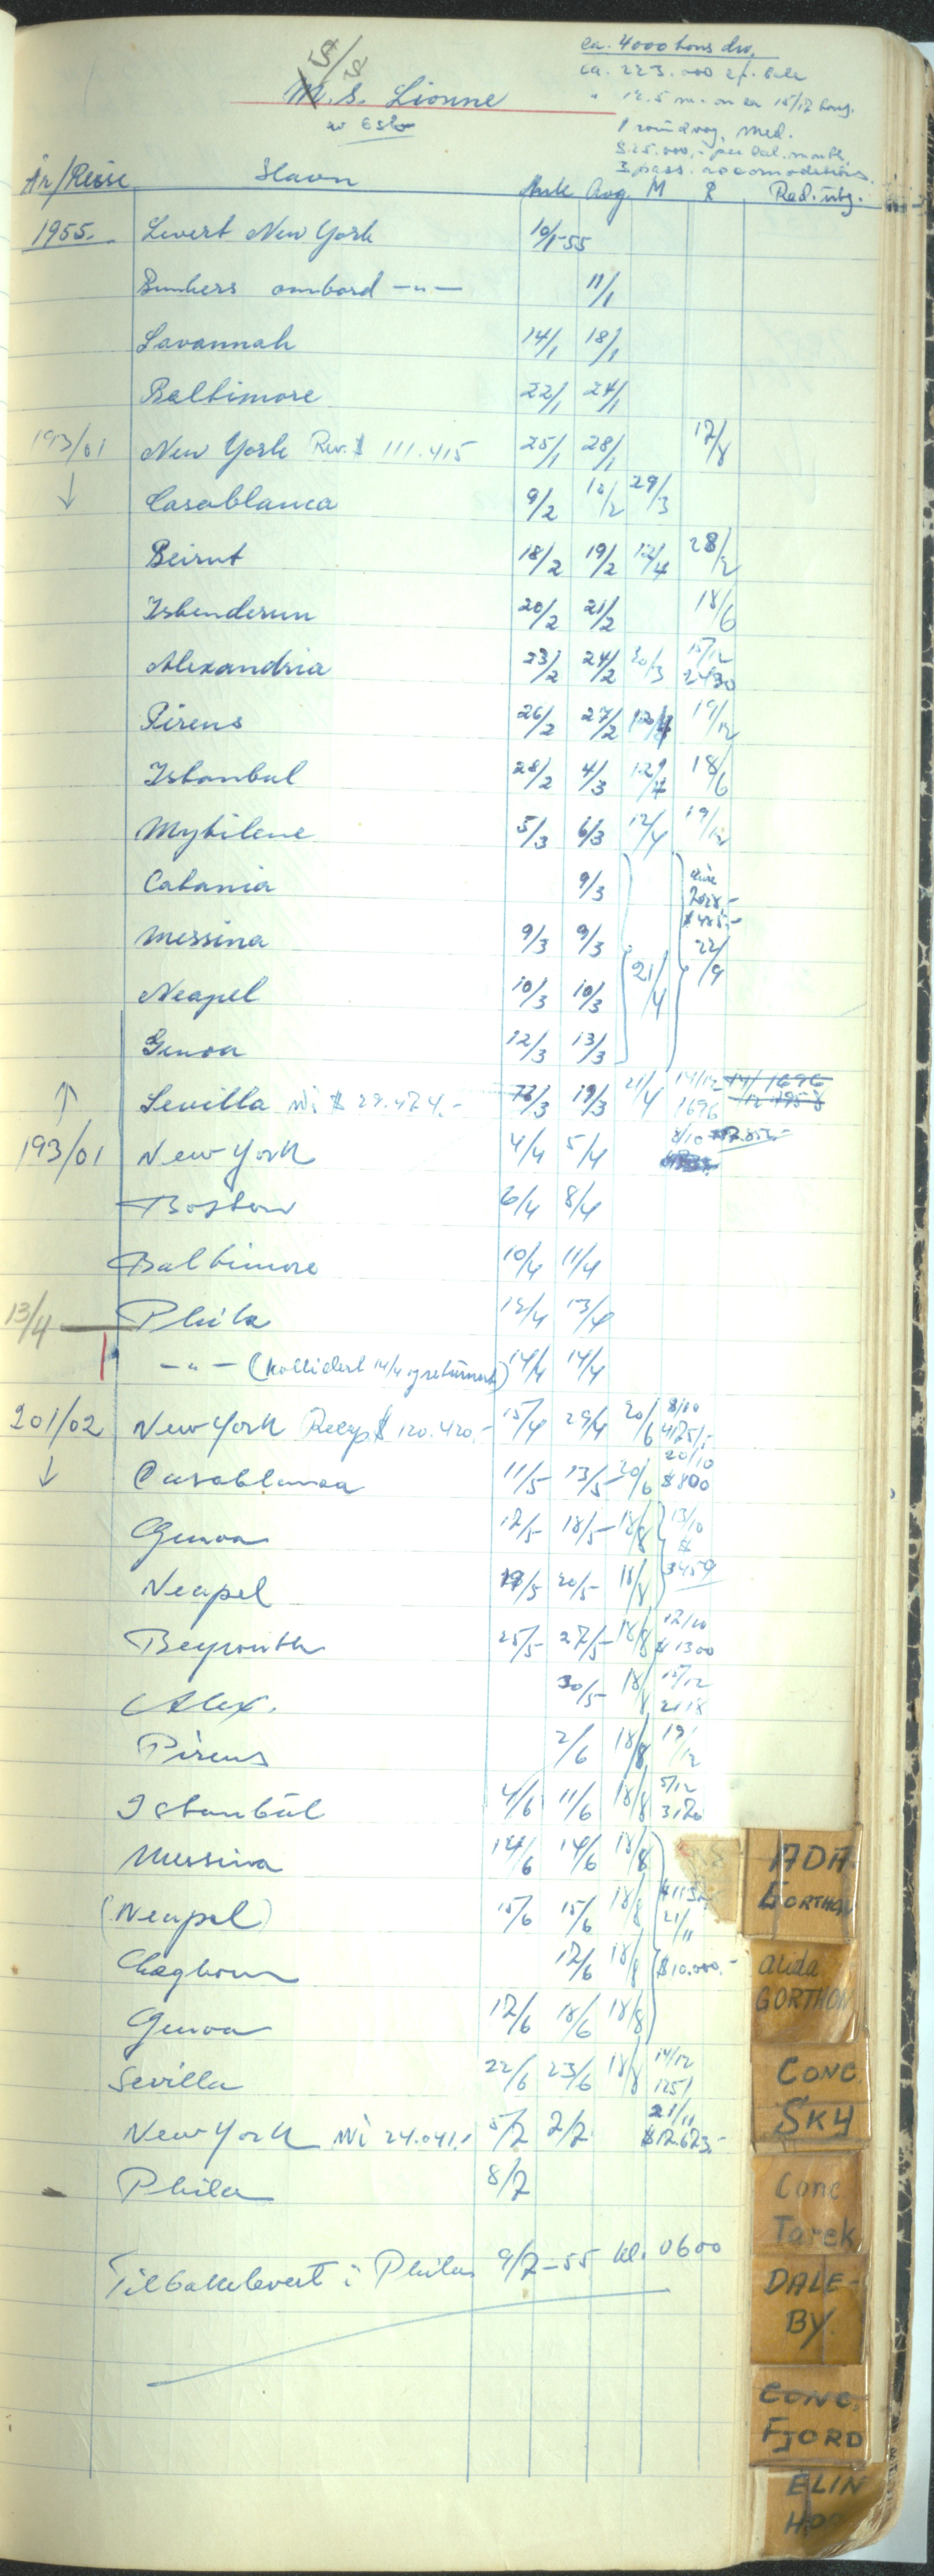 S/S
M.S. Lionne
ca. 4000 tons dw.
ca. 223.000 cf. bale
" 12.5 m. on ca 15/17 tons.
1 roundvoy. med.
$25.000,- per cal. month.
3 pass. accomodations.
År/Reise Havn Ank Avg M R Red. utg.
1955. Levert New York 10/1-55
Bunkers ombord -"- 11/1
Savannah 14/1 18/1
Baltimore 22/1 24/1
193/01 New York Rev. $ 111.415 25/1 28/1 17/8
↓ Casablanca 9/2 10/2 29/3
Beirut 18/2 19/2 12/4 28/2
Iskenderun 20/2 21/2 18/6
Alexandria 23/2 24/2 30/3 15/12 2430
Pireus 26/2 27/2 19/12
Istanbul 28/2 4/3 18/6
Mytilene 5/3 6/3 12/4 19/12
Catania 9/3
Messina 9/3 9/3 22/9
Neapel 10/3 10/3 21/4
Genoa 12/3 13/3
↑ Sevilla Ni $ 29.474.- 19/3 21/4 14/12 1696
193/01 New York 4/4 5/4 8/10
Boston 6/4 8/4
Baltimore 10/4 11/4
13/4 Phila 12/4 13/4
-"- (Kollidert 14/4 og returnert) 14/4 14/4
201/02 New York Recap $ 120.420.- 15/4 29/4 20/6 8/10
↓ Casablanca 11/5 13/5 20/6 20/10 $800
Genoa 17/5 18/5 18/8 13/10 $
Neapel 19/5 20/5 18/8 3459
Beyrouth 25/5 27/5 18/8 12/10 $1300
Alex. 30/5 18/8 15/12 2118
Pireus 2/6 18/8 19/12
Istanbul 4/6 11/6 18/8 5/12 3170
Messina 14/6 14/6 18/8
(Neapel) 15/6 15/6 18/8 21/11
17/6 18/8 $10.000.-
Genoa 17/6 18/6 18/8
Sevilla 22/6 23/6 18/8 14/12 1251
New York Ni 24.041.- 5/7 7/7 21/11 $17.673.-
Phila 8/7
Tilbakelevert i Phila 9/7-55 kl. 0600
ADA
GORTHON
Alida
GORTHON
CONC.
SKY
Conc.
Tarek
DALE-
BY.
CONC.
FJORD
ELIN